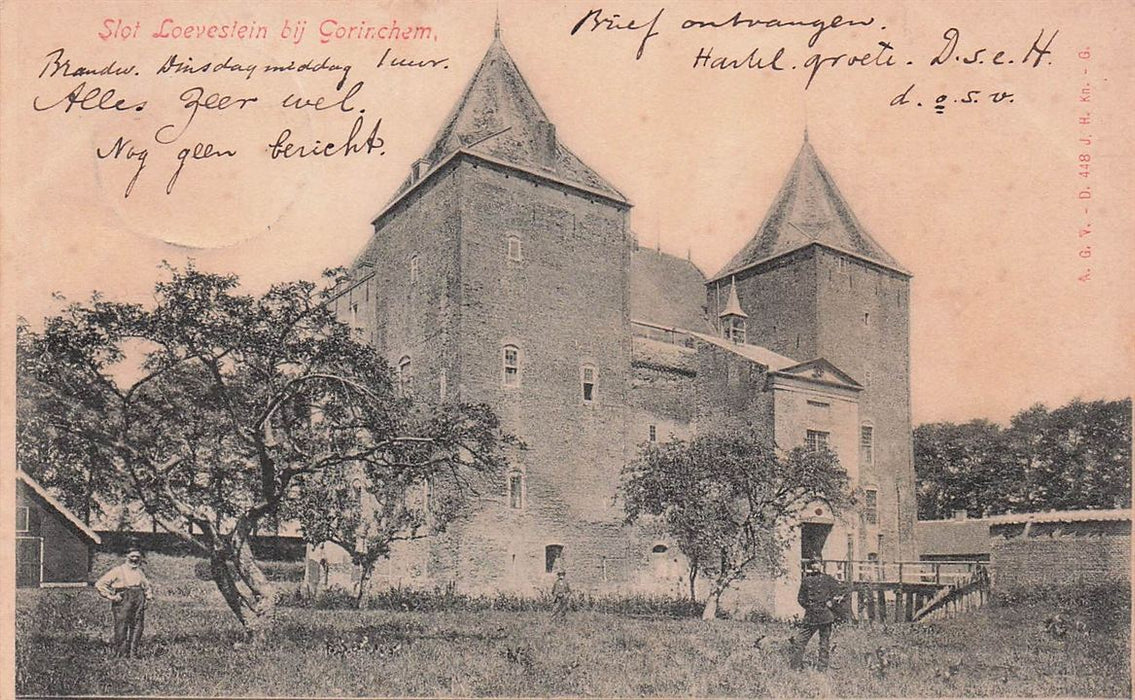 Slot Loevestein bij Gorinchem,
Brandw. Dinsdagmiddag 1 uur.
Alles zeer wel.
Nog geen bericht.
Brief ontvangen.
Hartel. groete. D.s.e.H.
d.o.s.v.
A. G. V. - D. 448 J. H. Kn. - G.